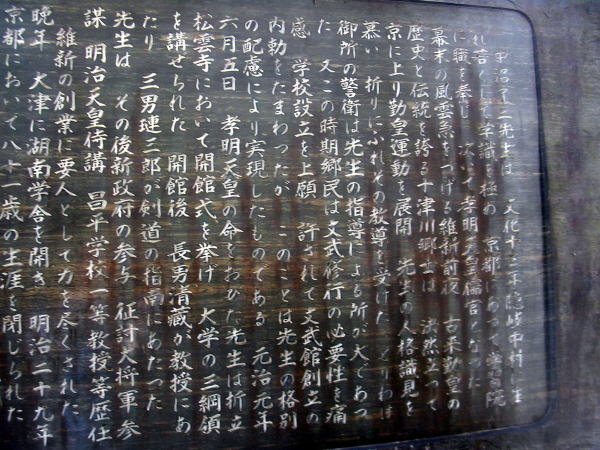 中沼了三先生は 文化十三年隠岐中村に生
れ若くして学識を極め 京都にあって学習院
に職を奉じ 次いで孝明天皇儒官となった
幕末の風雲急をつげる維新前夜 古来勤皇の
歴史と伝統を誇る十津川郷士は 決然立って
京に上り勤皇運動を展開 先生の人格識見を
慕い 折りにふれその教導を受けた とりわけ
御所の警衛は先生の指導による所が大であっ
た 又この時期郷民は文武修行の必要性を痛
感 学校設立を上願 許されて文武館創立の
内勅をたまわったが このことは先生の格別
の配慮により実現したものである 元治元年
六月五日 孝明天皇の命をおびた先生は折立
松雲寺において開館式を挙げ 大学の三綱領
を講ぜられた 開館後 長男清蔵が教授にあ
たり 三男璉三郎が剣道の指南にあたった
先生は その後新政府の参与 征討大将軍参
謀 明治天皇侍講 昌平学校一等教授等歴任
維新の創業に要人として力を尽くされた
晩年 大津に湖南学舎を開き 明治二十九年
京都において八十一歳の生涯を閉じられた